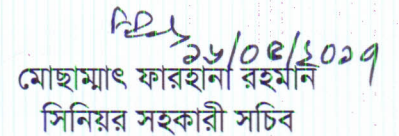 ২৮/০৫/২০১৭
মোছাম্মাৎ ফারহানা রহমান
সিনিয়র সহকারী সচিব